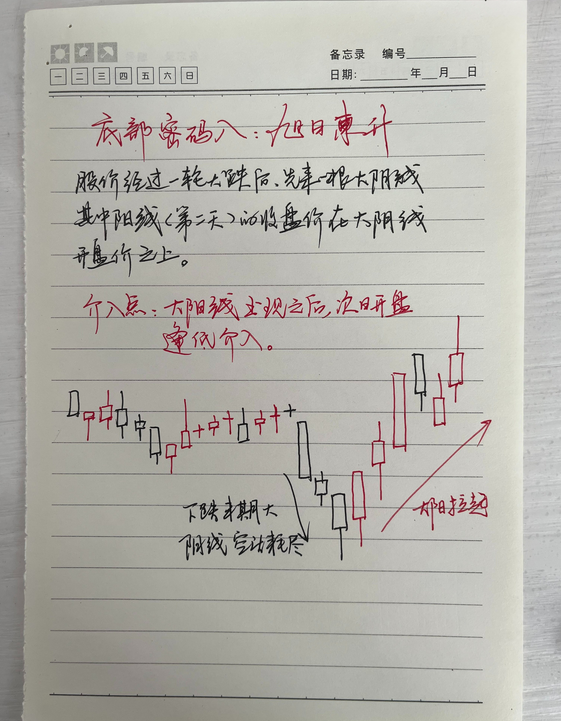 备忘录 编号
日期: 年 月 日
一 二 三 四 五 六 日
底部密码八：旭日東升
股价经过一轮大跌后、先来一根大阴线
其中阳线(第二天)的收盘价在大阴线
开盘价之上。
介入点：大阳线出现之后,次日开盘
逢低介入。
下跌末期大
阴线空动耗尽
大阳拉起